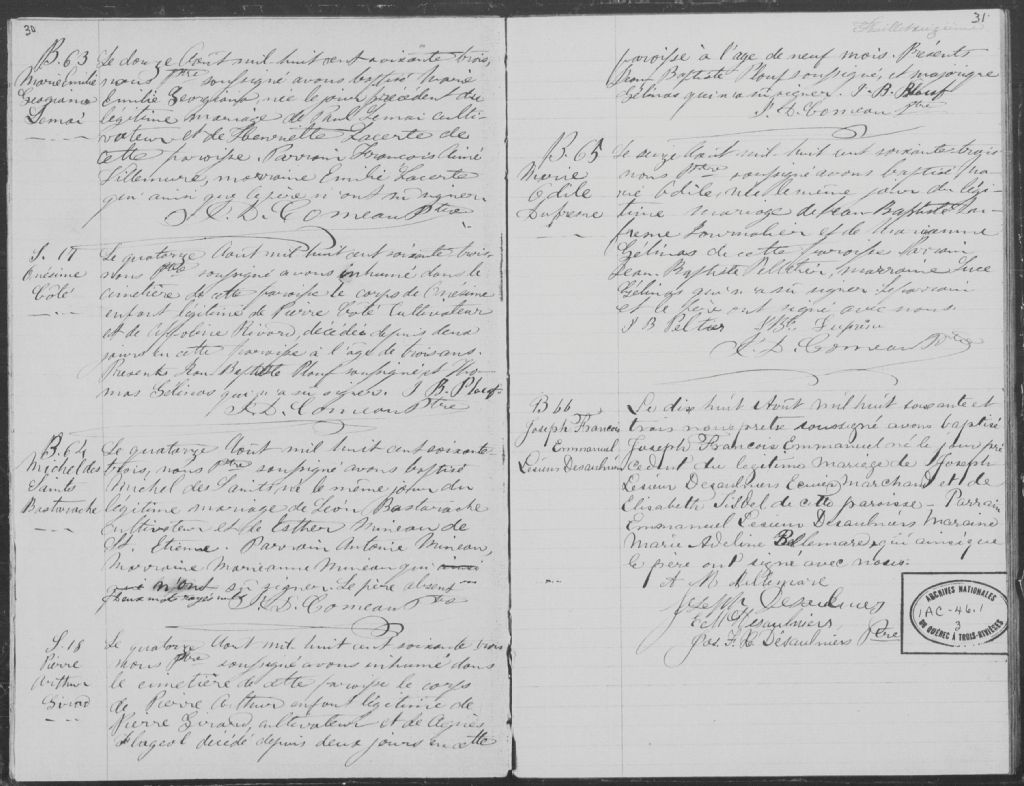 30
B. 63
Marie Emilie
Georgiana
Lemai
Le douze Aout mil-huit cent soixante trois,
nous Ptre soussigné avons baptisé Marie
Emilie Georgiana, née le jour précédent du
légitime mariage de Paul Lemai culti-
vateur et de Henriette Lacerte de
cette paroisse. Parrain François Aimé
Villemure, marraine Emilie Lacerte
qui ainsi que le père n'ont su signer.
J. D. Comeau Ptre
S. 17
Onésime
Coté
Le quatorze Aout mil huit cent soixante trois
nous Ptre soussigné avons inhumé dans le
cimetière de cette paroisse le corps de Onésime
enfant légitime de Pierre Coté Cultivateur
et de Appoline Rivard, décédé depuis deux
jours en cette paroisse à l'âge de trois ans.
Présents Jean Baptiste Plouf soussigné et Tho-
mas Gélinas qui n'a su signer. J. B. Plouf
J. D. Comeau Ptre
B. 64
Michel des
Saints
Bastarache
Le quatorze Aout mil huit cent soixante-
trois, nous Ptre soussigné avons baptisé
Michel des Saints, né le même jour du
légitime mariage de Léon Bastarache
cultivateur et de Esther Mineau de
St. Etienne. Parrain Antonie Mineau,
Marraine Marieanne Mineau qui
n'ont su signer. Le père absent
Deux mots rayés nuls J. D. Comeau Ptre
S. 18
Pierre
Arthur
Girard
Le quatorze Aout mil huit cent soixante trois
nous Ptre soussigné avons inhumé dans
le cimetière de cette paroisse le corps
de Pierre Arthur enfant légitime de
Pierre Girard, cultivateur et de Agnès
Flageol décédé depuis deux jours en cette
31
Feuillet
paroisse à l'âge de neuf mois. Présents
Jean Baptiste Plouf soussigné, et majorique
Gélinas qui n'a su signer. J. B. Plouf
J. D. Comeau Ptre
B. 65
Marie
Odile
Dufresne
Le seize Aout mil huit cent soixante trois
nous Ptre soussigné avons baptisé Ma-
rie Odile, née le même jour du légi-
time mariage de Jean Baptiste Du-
fresne et de Marieanne
Gélinas de cette paroisse Parrain
Jean Baptiste Pelletier, marraine Luce
Gélinas qui n'a su signer. Le parrain
et le père ont signé avec nous.
J B Peltier J. Bte Dufresne
J. D. Comeau Ptre
B 66
Joseph François
Emmanuel
Lesieur Desaulniers
Le dix huit Aout mil huit soixante et
trois nous prêtre soussigné avons baptisé
Joseph Francois Emmanuel né le jour pré
cedent du legitime mariage de Joseph
Lesieur Desaulniers Ecuier Marchand et de
Elisabeth de cette paroisse – Parrain
Emmanuel Lesieur Desaulniers Maraine
Marie Adeline Bellemare, qui ainsi que
le père ont signé avec nous.
A M Bellemare
Joseph Desaulniers
E M Desaulniers
Jos. F. X Désaulniers Ptre
ARCHIVES NATIONALES
IAC-46.1
3
DU QUÉBEC À TROIS-RIVIÈRES